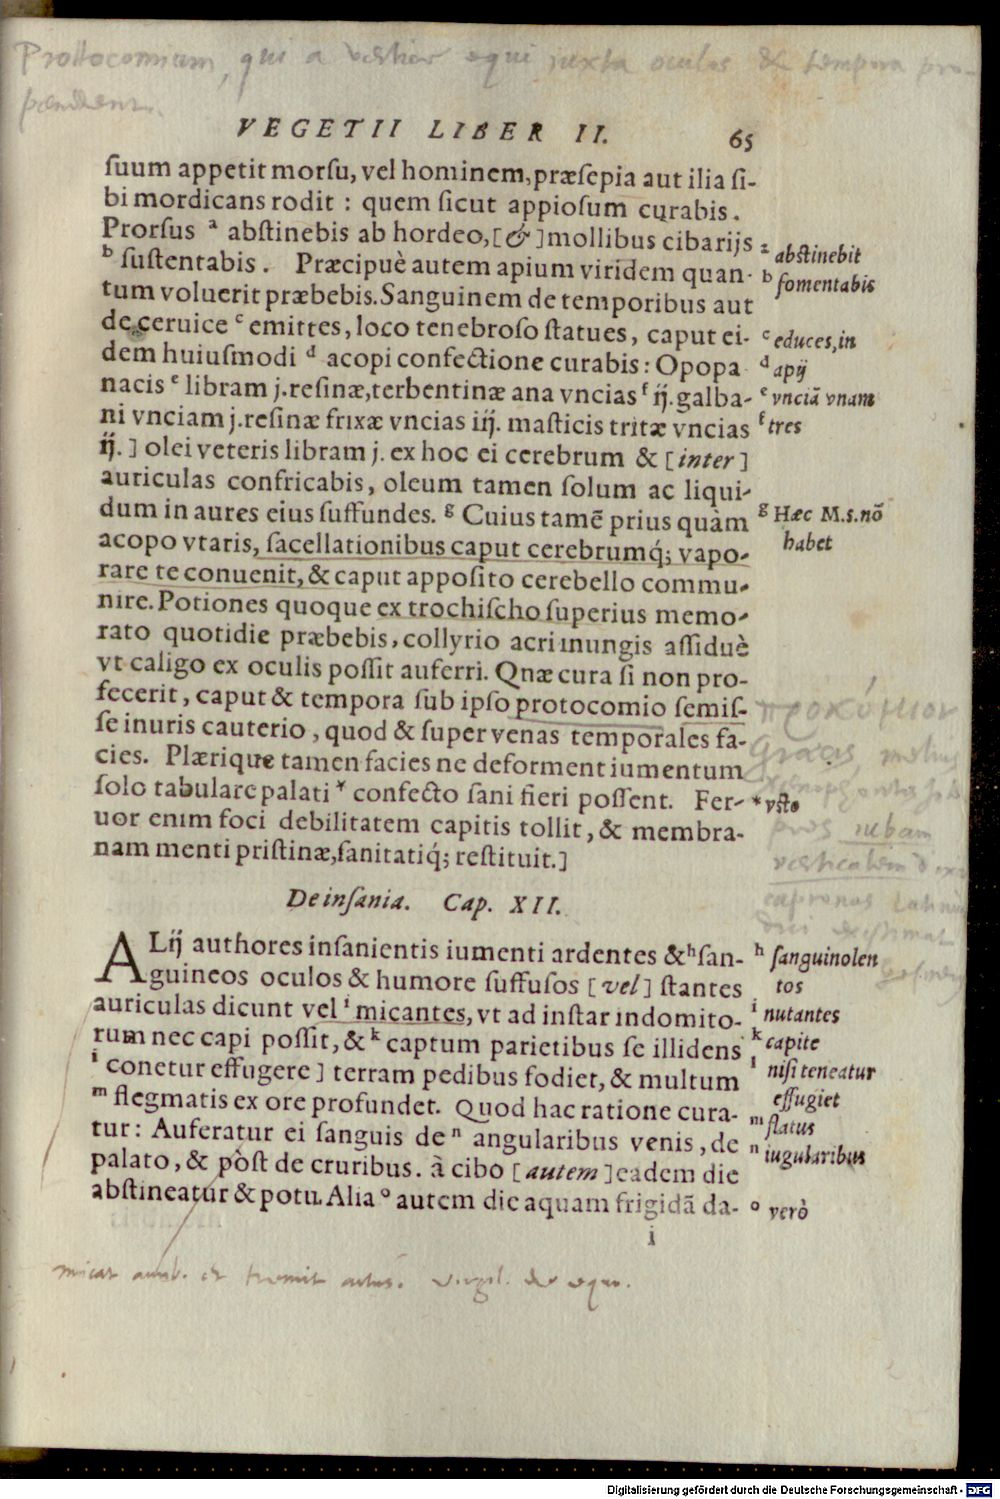 Prottocomium, qui a vertice equi iuxta oculos & tempora pro-
pendent.
VEGETII LIBER II. 65
ſuum appetit morſu, vel hominem, præſepia aut ilia ſi-
bi mordicans rodit : quem ſicut appioſum curabis.
Prorſus ᵃ abſtinebis ab hordeo, [&] mollibus cibarijs
ᵇ ſuſtentabis. Præcipuè autem apium viridem quan-
tum voluerit præbebis. Sanguinem de temporibus aut
de ceruice ᶜ emittes, loco tenebroſo ſtatues, caput ei-
dem huiuſmodi ᵈ acopi confectione curabis: Opopa
nacis ᵉ libram j. reſinæ, terbentinæ ana vncias ᶠ ij. galba-
ni vnciam j. reſinæ frixæ vncias iij. maſticis tritæ vncias
ij. ] olei veteris libram j. ex hoc ei cerebrum & [inter]
auriculas confricabis, oleum tamen ſolum ac liqui-
dum in aures eius ſuffundes. ᵍ Cuius tamē prius quàm
acopo vtaris, ſacellationibus caput cerebrumq́; vapo-
rare te conuenit, & caput appoſito cerebello commu-
nire. Potiones quoque ex trochiſcho ſuperius memo-
rato quotidie præbebis, collyrio acri inungis aſſiduè
vt caligo ex oculis poſſit auferri. Quæ cura ſi non pro-
fecerit, caput & tempora ſub ipſo protocomio ſemiſ-
ſe inuris cauterio, quod & ſuper venas temporales fa-
cies. Plærique tamen facies ne deforment iumentum
ſolo tabulare palati * confecto ſani fieri poſſent. Fer-
uor enim foci debilitatem capitis tollit, & membra-
nam menti priſtinæ, ſanitatiq́; reſtituit.]
ᵃ abſtinebit
ᵇ fomentabis
ᶜ educes, in
ᵈ apij
ᵉ vnciā vnam
ᶠ tres
ᵍ Hæc M.s. nō
habet
προκόμιον
Græcis, melius
iubam
verticalem
capronas Latinis
* vſto
De inſania. Cap. XII.
ALij authores inſanientis iumenti ardentes & ʰ ſan-
guineos oculos & humore ſuffuſos [vel] ſtantes
auriculas dicunt vel ⁱ micantes, vt ad inſtar indomito-
rum nec capi poſſit, & ᵏ captum parietibus ſe illidens
ˡ conetur effugere ] terram pedibus fodiet, & multum
ᵐ flegmatis ex ore profundet. Quod hac ratione cura-
tur: Auferatur ei ſanguis de ⁿ angularibus venis, de
palato, & pòſt de cruribus. à cibo [autem] eadem die
abſtineatur & potu. Alia ᵒ autem die aquam frigidā da-
i
ʰ ſanguinolen
tos
ⁱ nutantes
ᵏ capite
ˡ niſi teneatur
effugiet
ᵐ flatus
ⁿ iugularibus
ᵒ verò
micat aurib. et tremit artus. Virgil. de equo.
Digitalisierung gefördert durch die Deutsche Forschungsgemeinschaft - DFG